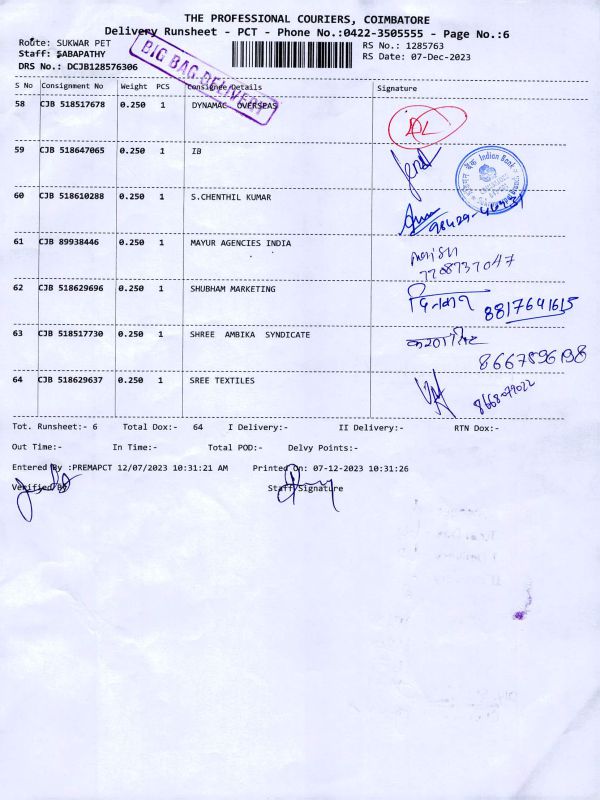 THE PROFESSIONAL COURIERS, COIMBATORE
Delivery Runsheet - PCT - Phone No.:0422-3505555 - Page No.:6
Route: SUKWAR PET
RS No.: 1285763
Staff: SABAPATHY
RS Date: 07-Dec-2023
DRS No.: DCJB128576306
BIG BAG DELIVERY
S No Consignment No Weight PCS Consignee Details Signature
58 CJB 518517678 0.250 1 DYNAMAC OVERSEAS
59 CJB 518647065 0.250 1 IB
Indian Bank
60 CJB 518610288 0.250 1 S.CHENTHIL KUMAR
61 CJB 89938446 0.250 1 MAYUR AGENCIES INDIA
7708737047
62 CJB 518629696 0.250 1 SHUBHAM MARKETING
8817641615
63 CJB 518517730 0.250 1 SHREE AMBIKA SYNDICATE
64 CJB 518629637 0.250 1 SREE TEXTILES
Tot. Runsheet:- 6 Total Dox:- 64 I Delivery:- II Delivery:- RTN Dox:-
Out Time:- In Time:- Total POD:- Delvy Points:-
Entered By :PREMAPCT 12/07/2023 10:31:21 AM Printed On: 07-12-2023 10:31:26
Verified By Staff Signature